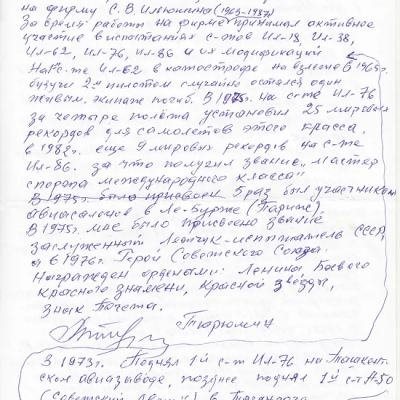 на фирму С.В. Илюшина (1963-1987)
За время работы на фирме принимал активное
участие в испытаниях с-тов Ил-18, Ил-38,
Ил-62, Ил-76, Ил-86 и их модификаций
На с-те Ил-62 в катастрофе на взлете в 1965г.
будучи 2-м пилотом случайно остался один
живым, экипаж погиб. В 1975г. на с-те Ил-76
за четыре полёта установил 25 мировых
рекордов для самолетов этого класса,
в 198 г. еще 9 мировых рекордов на с-те
Ил-86. за что получил звание "мастер
спорта международного класса"
В 1975г. было присвоен 5 раз был участником
авиасалонов в Ле-Бурже (Париж),
В 1975г. мне было присвоено звание
заслуженный Летчик-испытатель СССР,
а в 1976г. Герой Советского Союза.
Награжден орденами: Ленина, Боевого
Красного знамени, Красной звезды,
Знак Почета.
Тюрюмин
В 1973г. поднял 1й с-т Ил-76 на Ташкент-
ском авиазаводе, позднее поднял 1й с-т А-50
(Советский ) в Таганроге